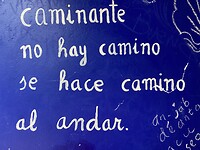 caminante
no hay camino
se hace camino
al andar.